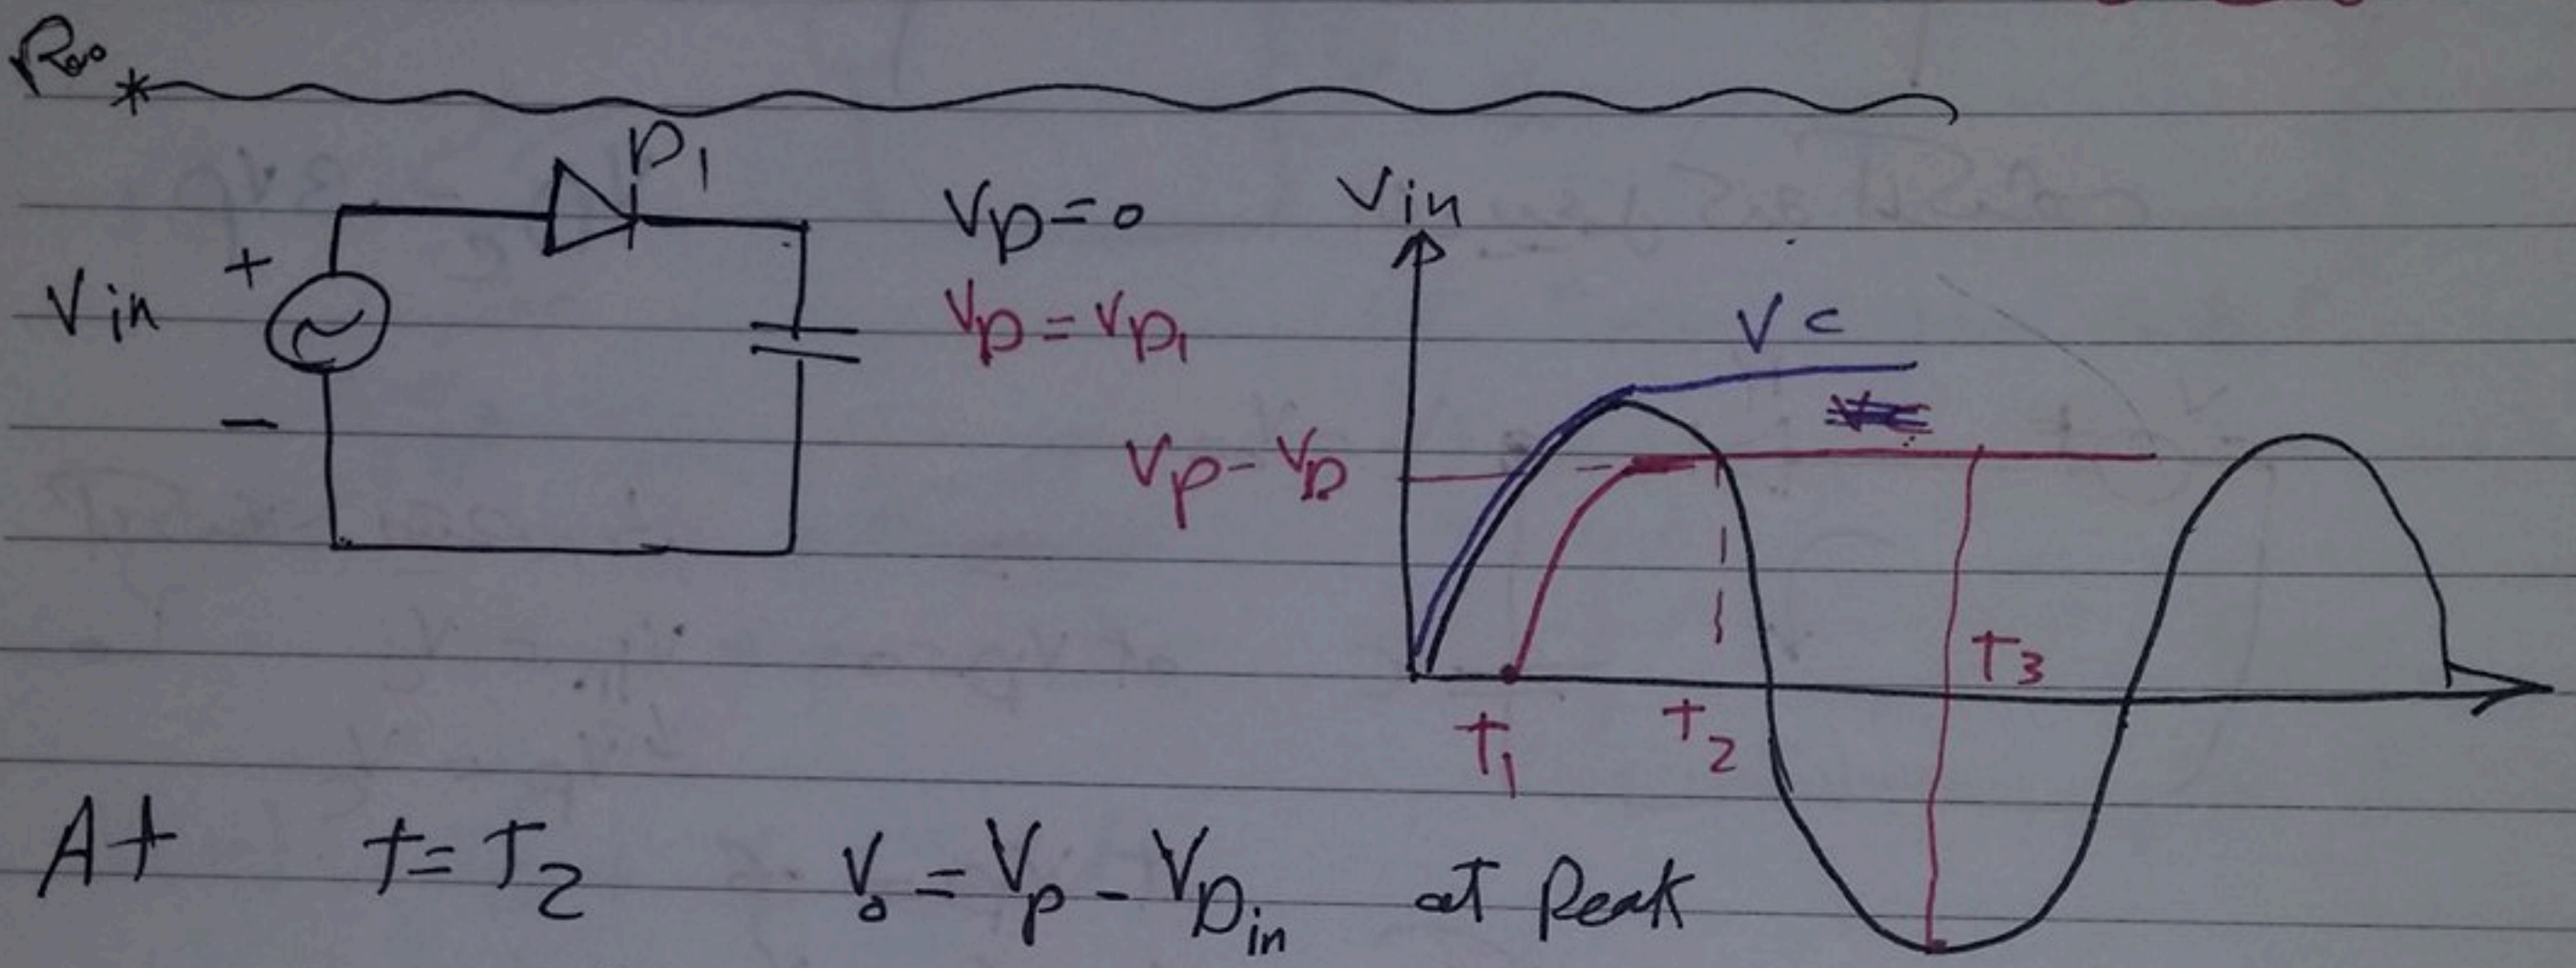 D1
Vin
+
-
VD=0
VD=VD1
Vin
Vc
Vp-VD
T1
T2
T3
At t=T2 Vo=Vp-VDin at Peak